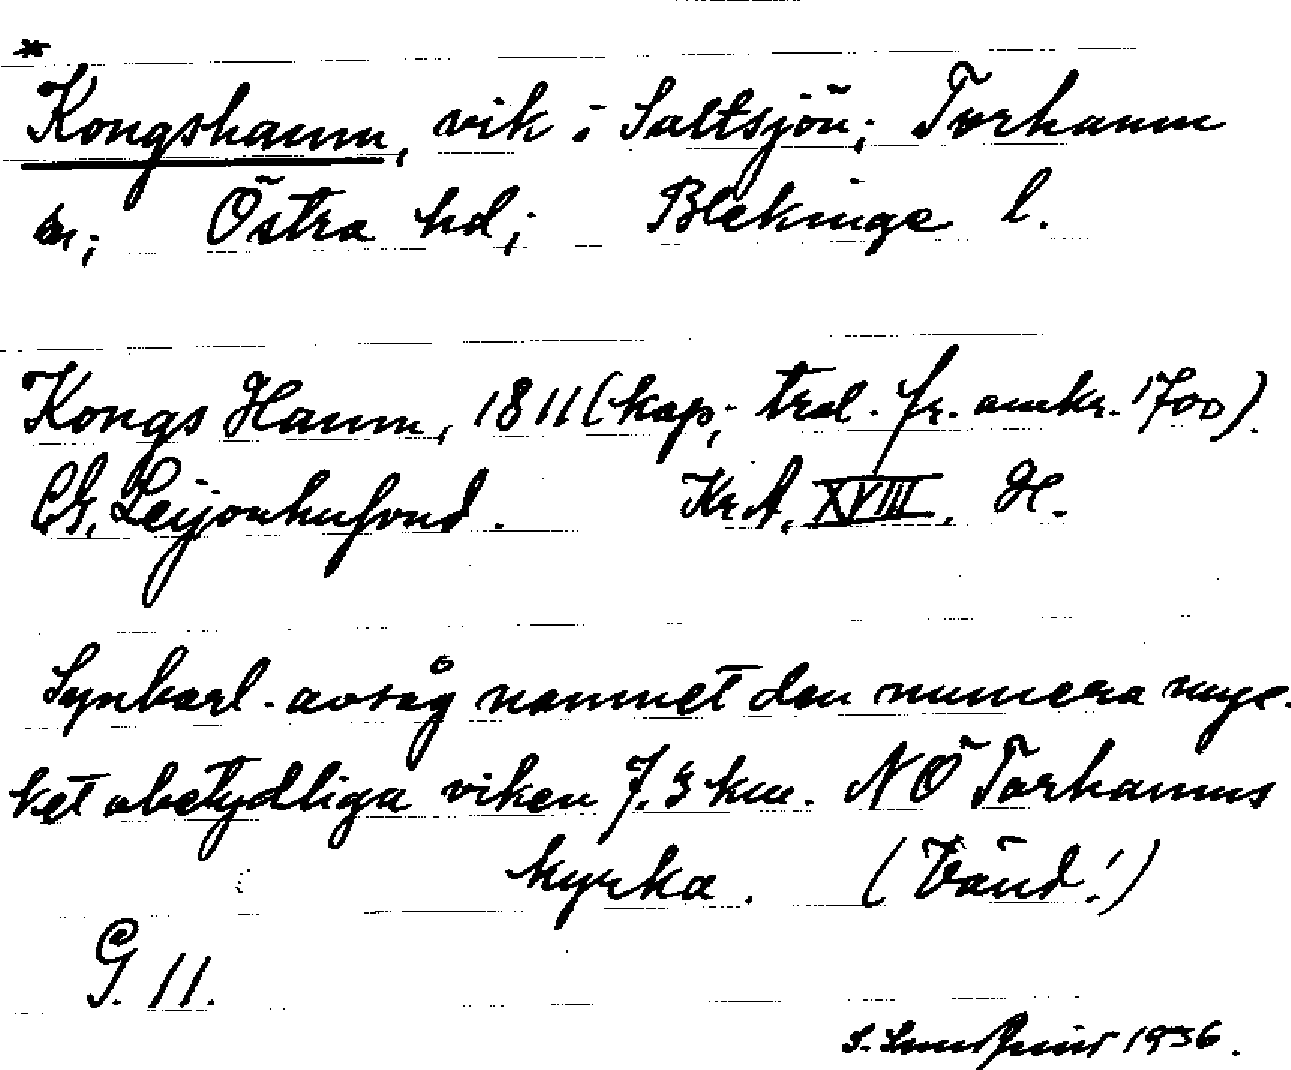 *
Kongshamn, vik i Saltsjön; Torhamn
sn; Östra hd; Blekinge l.
Kongs Hamn, 1811 (kap; trol. fr. omkr. 1700).
CG. Leijonhufvud. Kr.A. XVIII. H.
Synbarl. avsåg namnet den numera myc-
ket obetydliga viken 7.3 km. NÖ Torhamns
kyrka. (Vänd!)
G. 11.
S. 1936.